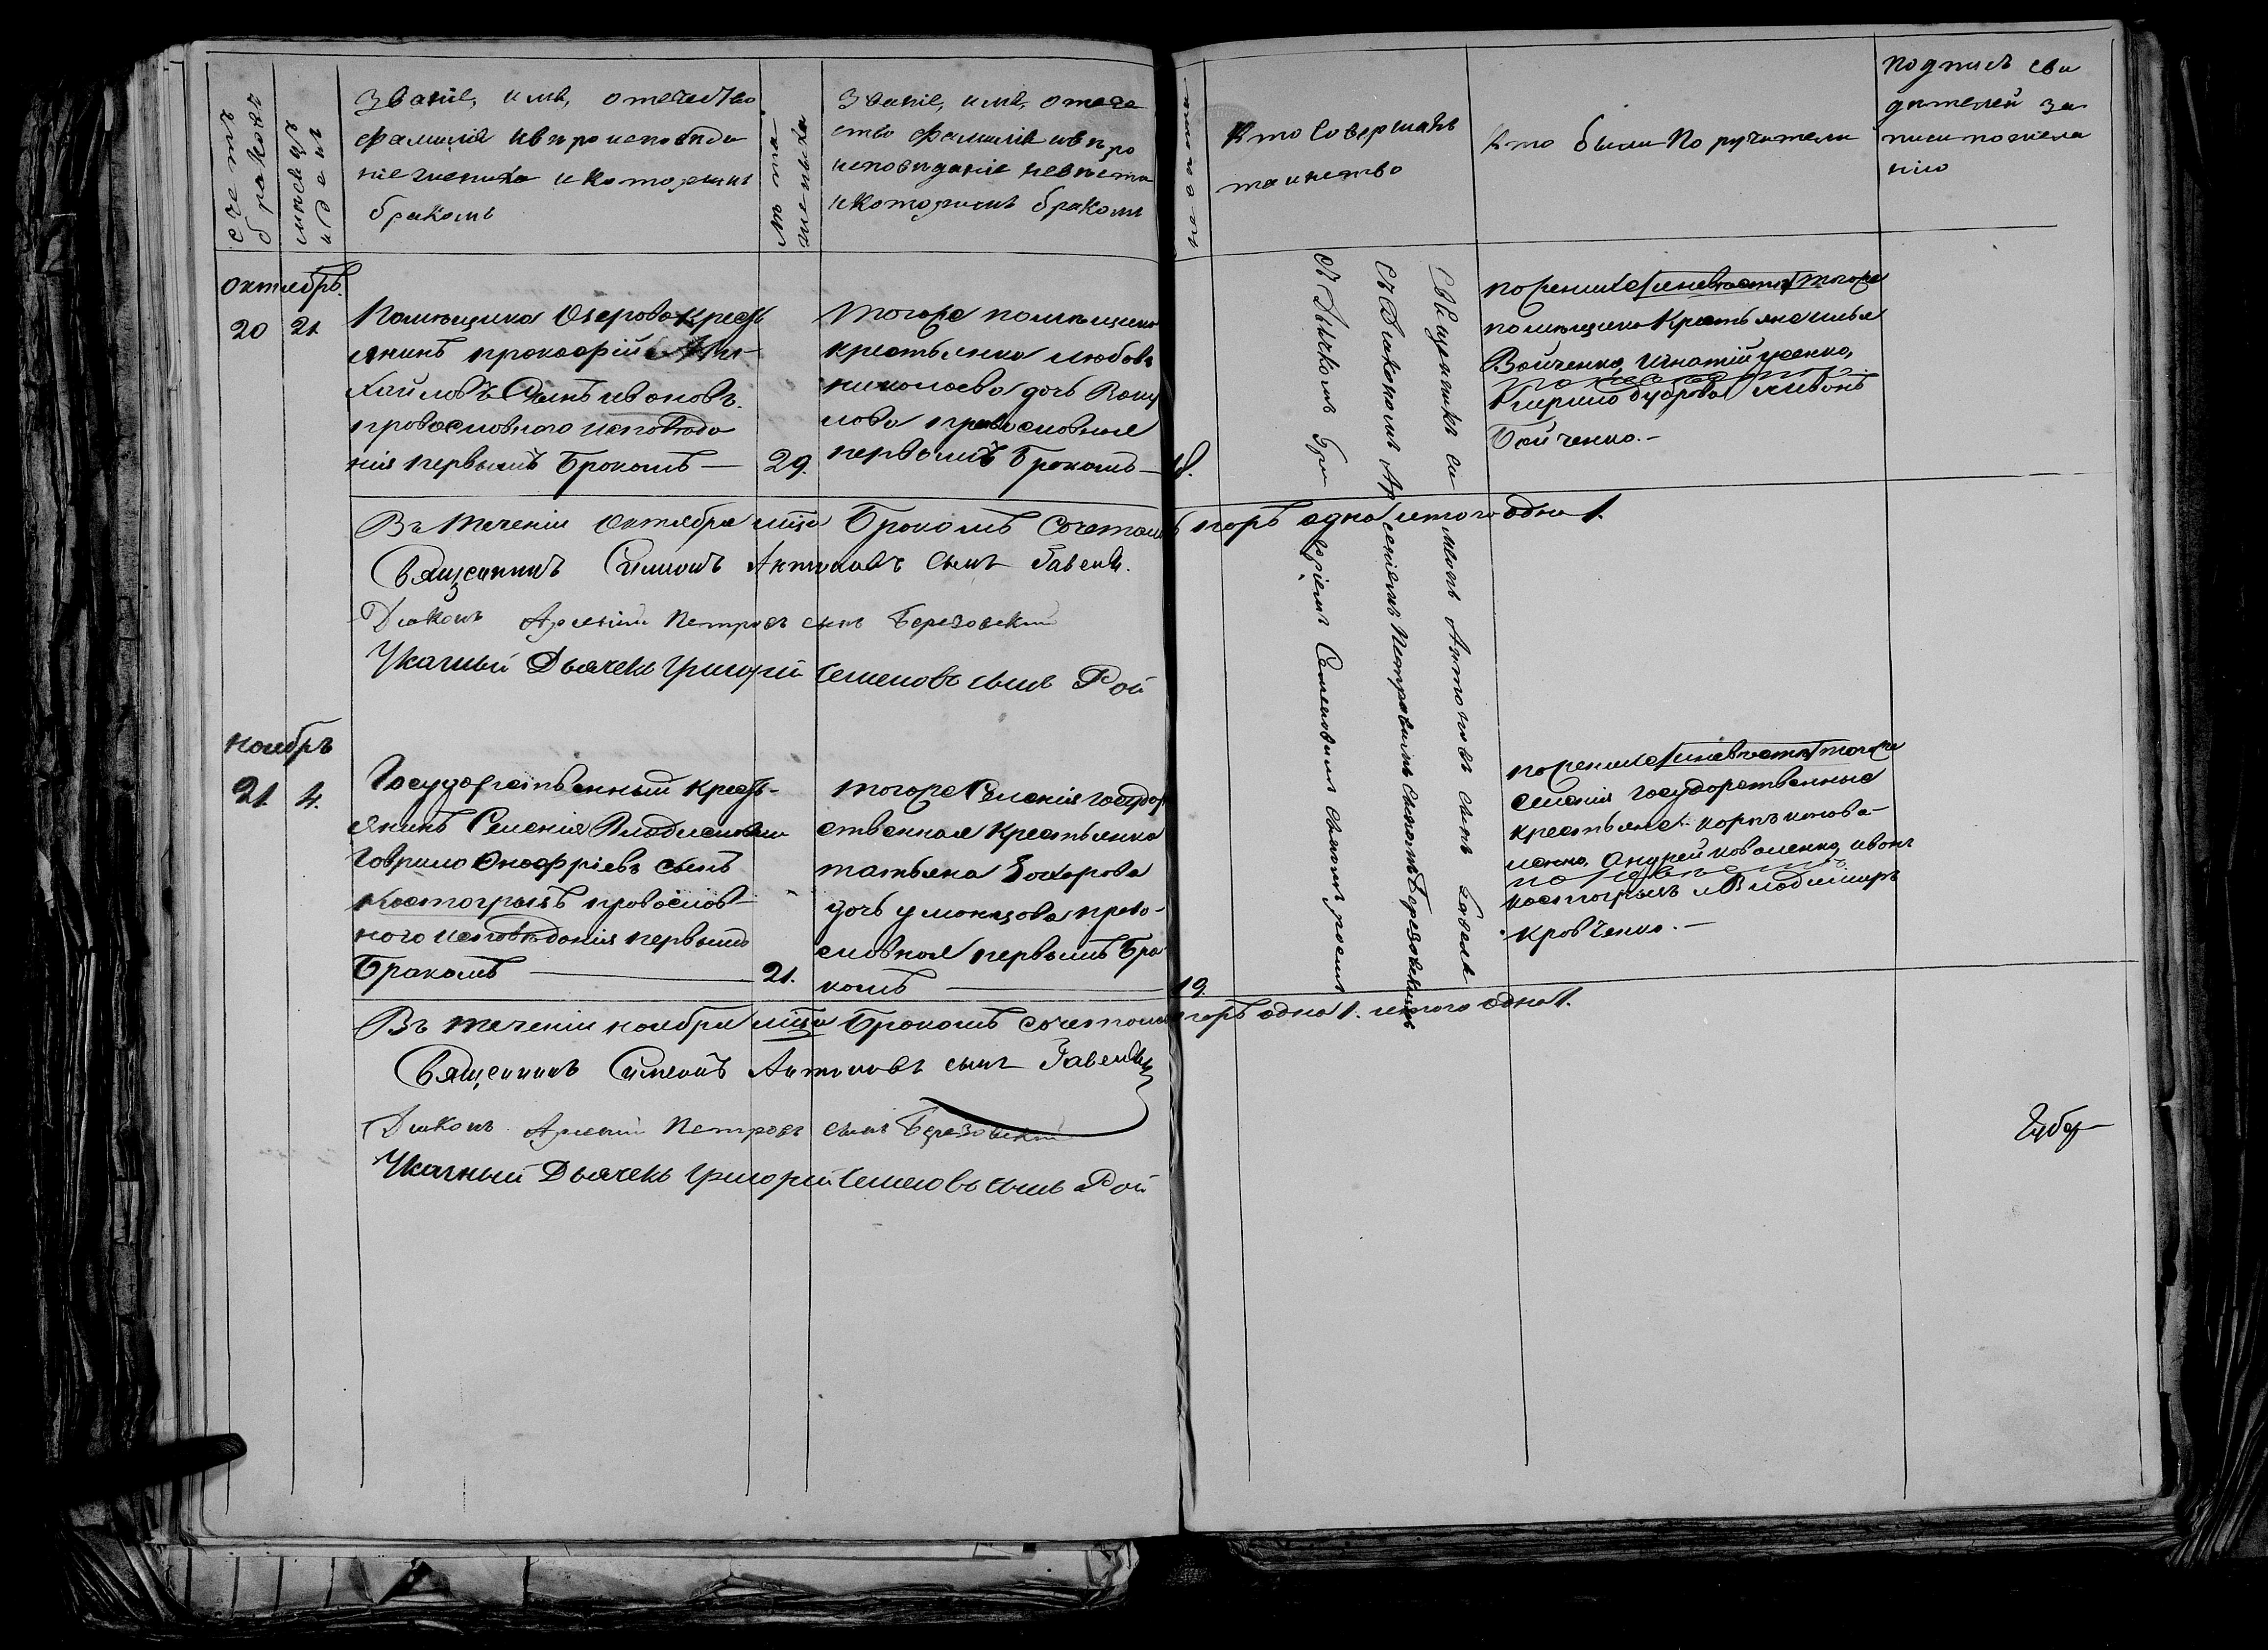 счетъ
браковъ
мѣсяцъ
и день
Званіе, имя, отечество
фамилія и вѣроисповѣда
ніе жениха и которымъ
бракомъ
лѣта
жениха
Званіе, имя, отече
ство фамилія и вѣро
исповѣданіе невѣсты
и которымъ бракомъ
Кто Совершалъ
таинство
Кто были Поручители
Подпись сви
дѣтелей за
писи по жела
нію
октябрь.
20 21
Помѣщика Озерова Кресть
янинъ прокофій Ми-
хайловъ Сынъ ивановъ.
православнаго исповѣда
нія первымъ Бракомъ — 29.
тогоже помѣщика
крестьянка любовь
николаева дочь
православная
первымъ Бракомъ — 18.
Священникъ Симеонъ Антоновъ сынъ
Съ Діакономъ Арсеніемъ Петровымъ сыномъ Березовскимъ
Съ Дьячкомъ Григоріемъ Семеновымъ сыномъ роемъ
по женихѣ и невѣстѣ тогоже
помѣщика Крестьяне илья
Войченко, Игнатій
Кирило бударова иванъ
Бойченко.—
Въ теченіи Октября мца Бракомъ Сочеталось паръ одна итого одна 1.
Священникъ Симеонъ Антоновъ Сынъ
Діаконъ Арсеній Петровъ сынъ Березовскій
Указный Дьячекъ Григорій Семеновъ сынъ Рой
ноябрь
21. 4.
Государственный кресть-
янинъ Селенія
Гаврило Онофріевъ сынъ
Костогрызъ православ-
наго исповѣданія первымъ
Бракомъ — 21.
тогоже Селенія государ
ственная крестьянка
татьяна Захарова
дочь уманцова право-
славная первымъ Бра
комъ — 19.
по женихѣ и невѣстѣ тогоже
селенія государственные
крестьяне: корнѣ кова-
ленко, Андрей коваленко, иванъ
костогрызъ и Владимиръ
кравченко.—
Въ теченіи ноября мца Бракомъ сочеталось паръ одна 1. итого одна 1.
Священникъ Симеонъ Антоновъ сынъ
Діаконъ Арсеній Петровъ сынъ Березовскій
Указный Дьячекъ Григорій Семеновъ сынъ Рой